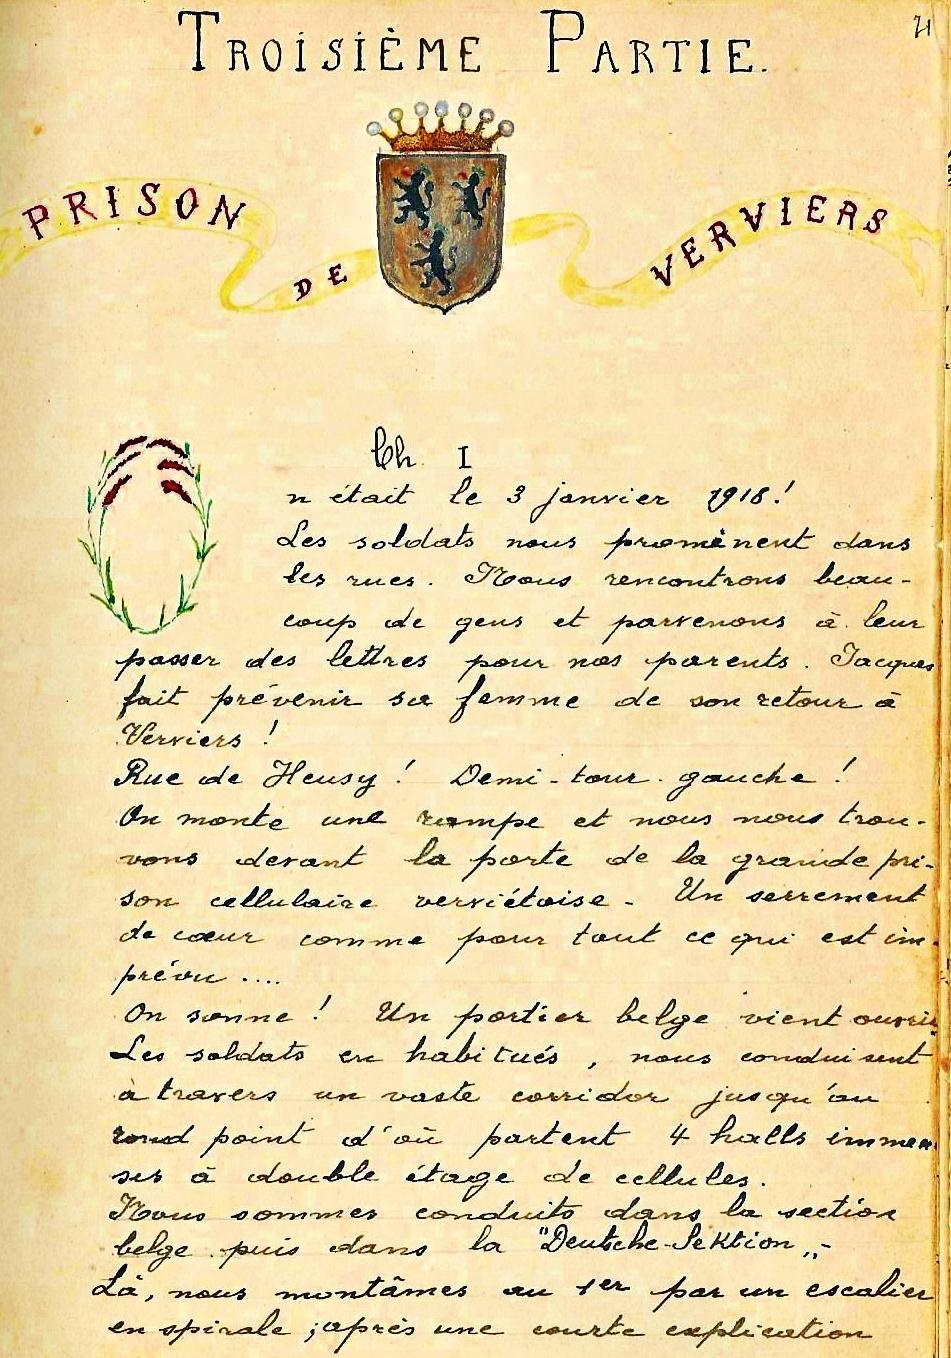 TROISIÈME PARTIE.
PRISON DE VERVIERS
Ch I
On était le 3 janvier 1918!
Les soldats nous promènent dans
les rues. Nous rencontrons beau-
coup de gens et parvenons à leur
passer des lettres pour nos parents. Jacques
fait prévenir sa femme de son retour à
Verviers !
Rue de Heusy ! Demi-tour gauche !
On monte une rampe et nous nous trou-
vons devant la porte de la grande pri-
son cellulaire verviétoise - Un serrement
de cœur comme pour tout ce qui est im-
prévu ....
On sonne ! Un portier belge vient ouvrir.
Les soldats en habitués, nous conduisent
à travers un vaste corridor jusqu'au
rond point d'où partent 4 halls immen-
ses à double étage de cellules.
Nous sommes conduits dans la section
belge puis dans la "Deutche-Sektion„-
Là, nous montâmes au 1er par un escalier
en spirale ; après une courte explication